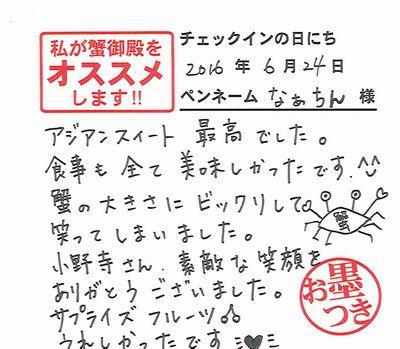 私が蟹御殿を
オススメ
します!!
チェックインの日にち
2016 年 6 月 24 日
ペンネーム なぁちん 様
アジアンスイート 最高でした。
食事も全て美味しかったです.^^
蟹の大きさにビックリして
笑ってしまいました。
蟹
小野寺さん、素敵な笑顔を
ありがとうございました。
サプライズフルーツ
うれしかったです
お墨つき